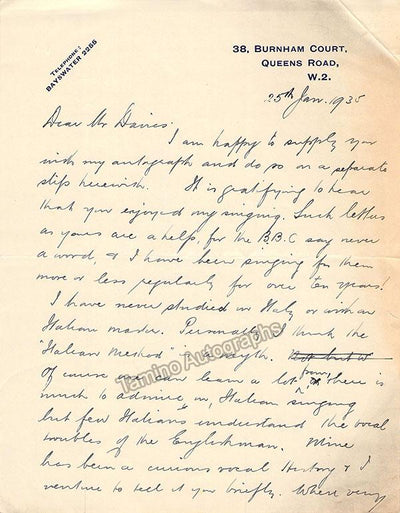 TELEPHONE:
BAYSWATER 2286
38, BURNHAM COURT,
QUEENS ROAD,
W.2.
25th Jan. 1935
Dear Mr Davies.
I am happy to supply you
with my autograph and do so on a separate
slip herewith. It is gratifying to hear
that you enjoyed my singing. Such letters
as yours are a help, for the B.B.C say never
a word, & I have been singing for them
more or less regularly for over ten years!
I have never studied in Italy or with an
Italian master. Personally I think the
"Italian Method" is a myth.
Of course one can learn a lot from, & there is
much to admire in, Italian singing
but few Italians understand the vocal
troubles of the Englishman. Mine
has been a curious vocal History & I
venture to tell it you briefly. When very
Tamino Autographs